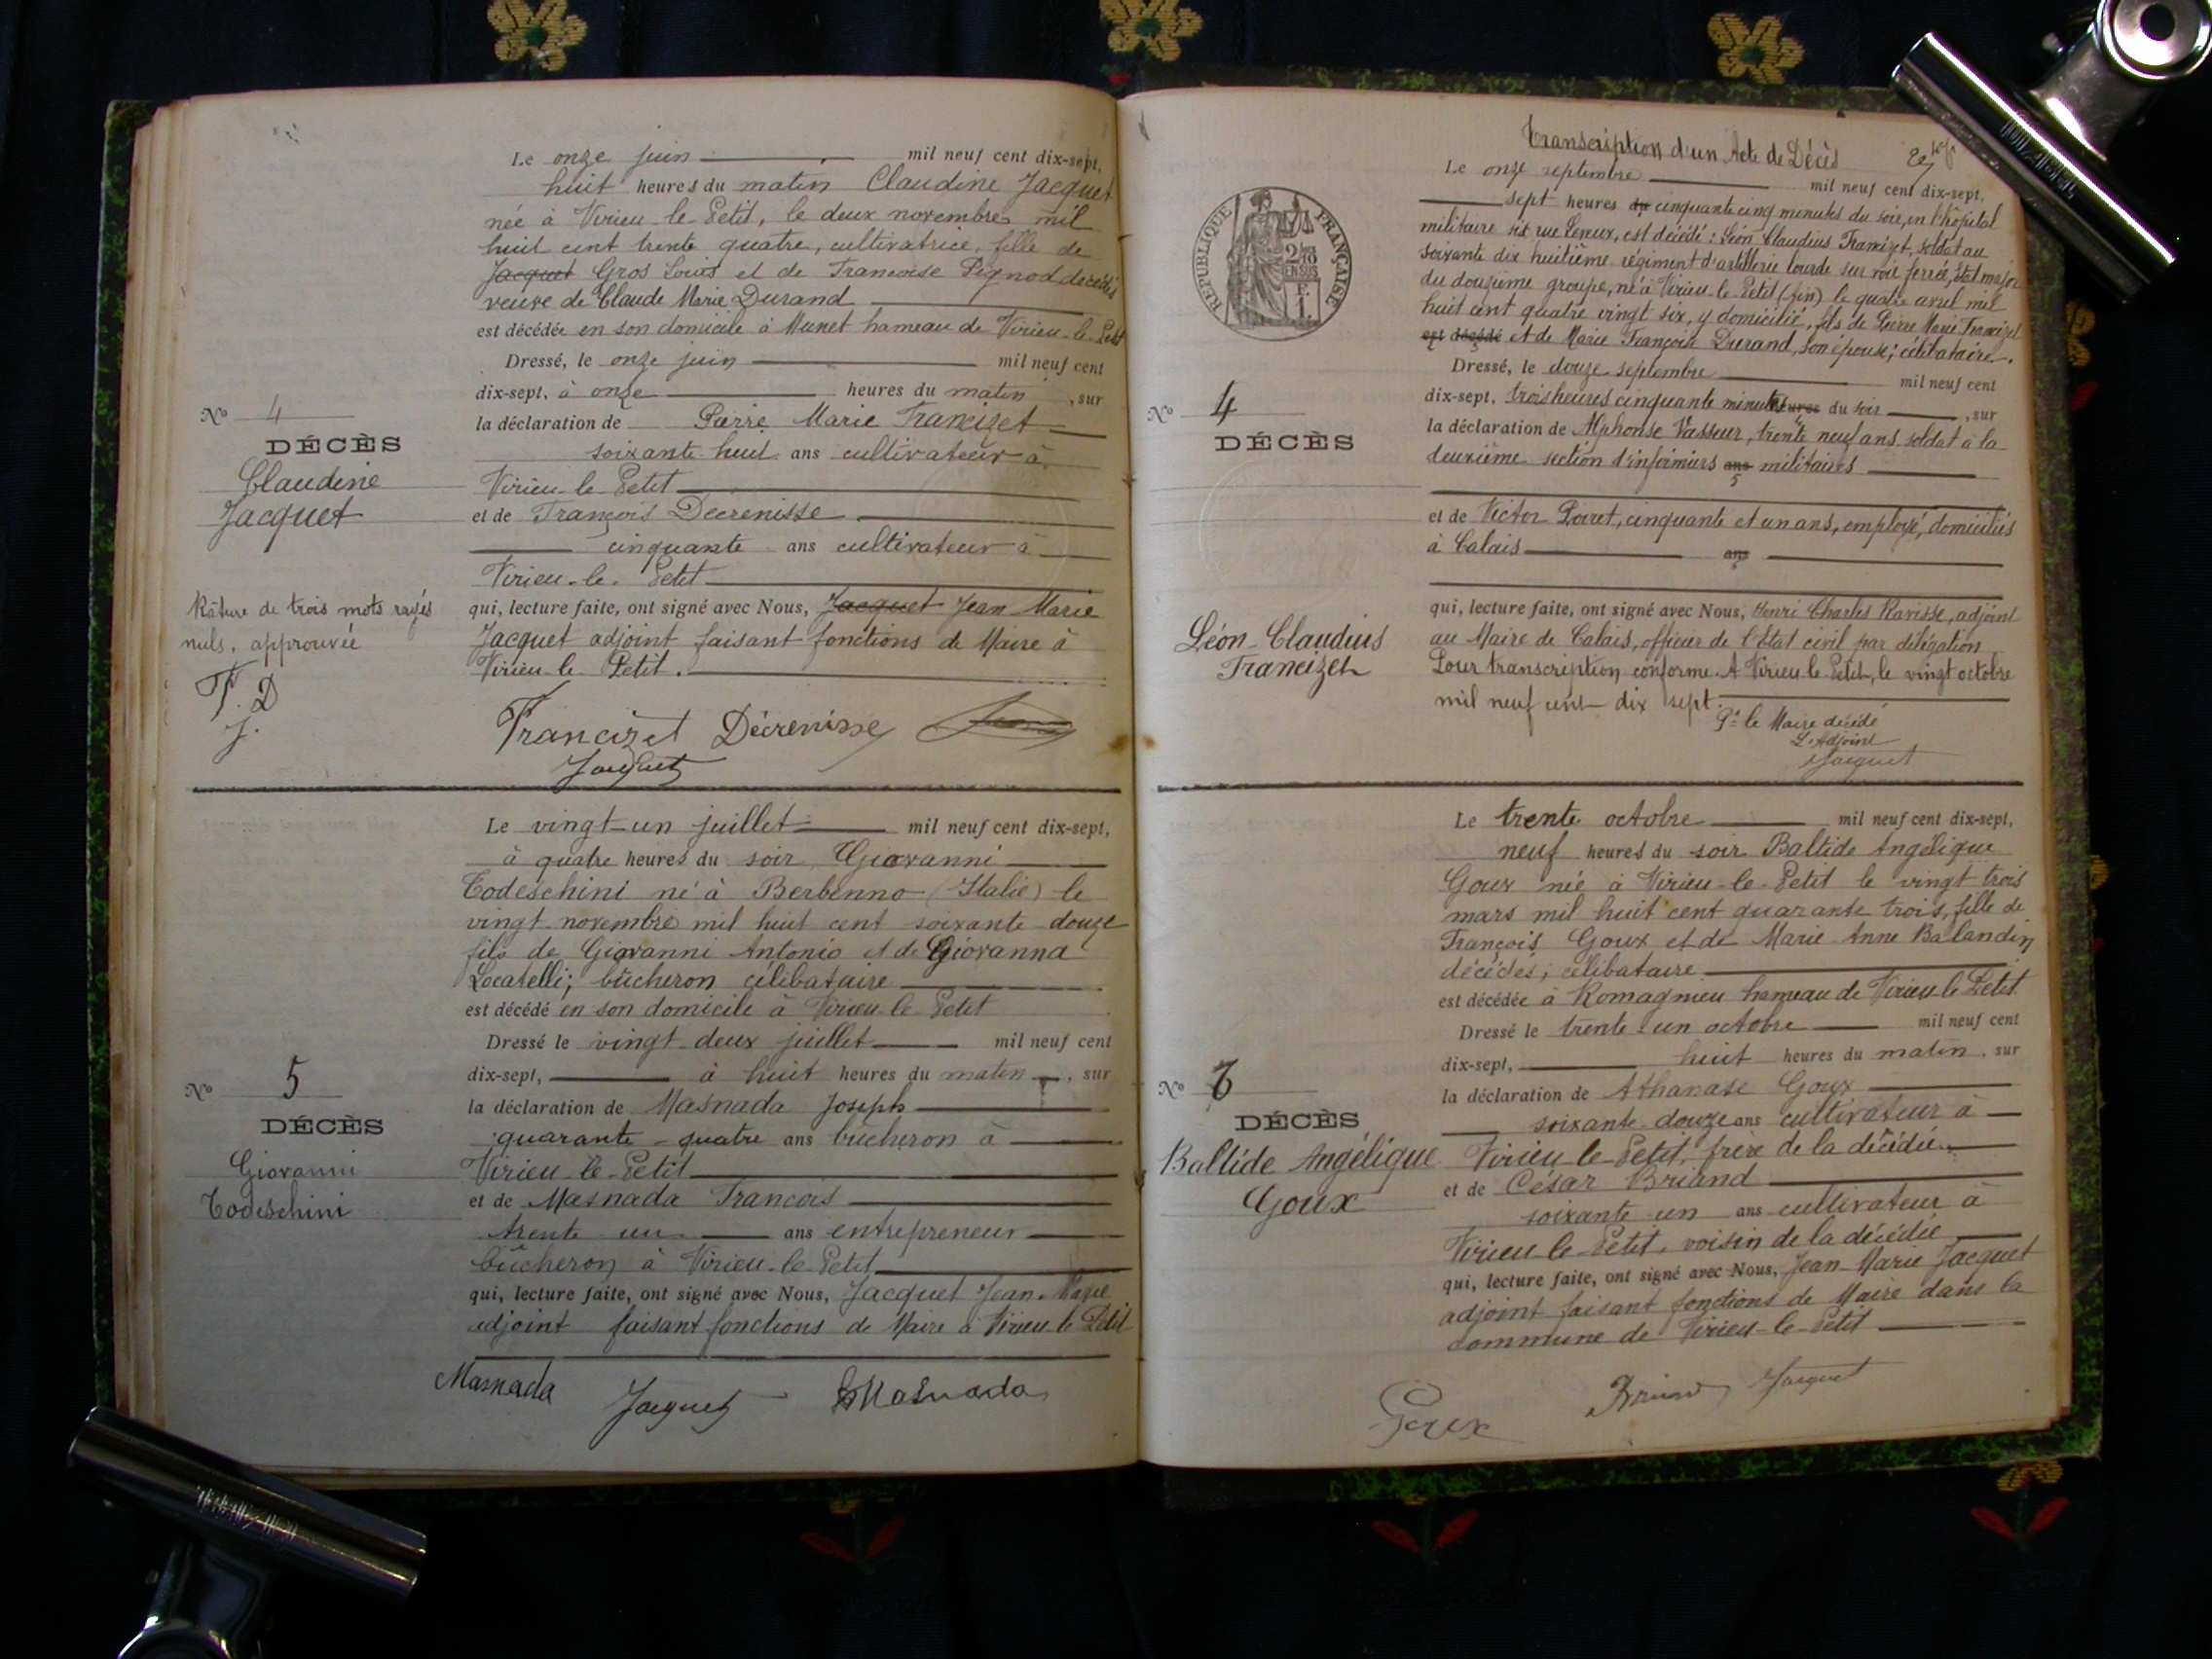 Le onze juin mil neuf cent dix-sept,
huit heures du matin Claudine Jacquet
née à Virieu-le-Petit, le deux novembre mil
huit cent trente quatre, cultivatrice, fille de
Jacquet Gros Louis et de Francoise Pignod décédés
veuve de Claude Marie Durand
est décédée en son domicile à Munet hameau de Virieu-le-Petit
Dressé, le onze juin mil neuf cent
dix-sept, à onze heures du matin, sur
la déclaration de Pierre Marie Francizet
soixante huit ans cultivateur à
Virieu-le-Petit
et de François Décrenisse
cinquante ans cultivateur à
Virieu-le-Petit
qui, lecture faite, ont signé avec Nous, Jacquet Jean Marie
Jacquet adjoint faisant fonctions de Maire à
Virieu-le-Petit.
Francizet Décrenisse
Jacquet
No 4
DÉCÈS
Claudine
Jacquet
Râture de trois mots rayés
nuls, approuvée
F. D
J.
Le vingt-un juillet mil neuf cent dix-sept,
à quatre heures du soir Giovanni
Todeschini né à Berbenno (Italie) le
vingt novembre mil huit cent soixante-douze
fils de Giovanni Antonio et de Giovanna
Locatelli; bûcheron célibataire
est décédé en son domicile à Virieu-le-Petit
Dressé le vingt-deux juillet mil neuf cent
dix-sept, à huit heures du matin, sur
la déclaration de Masnada Joseph
quarante-quatre ans bûcheron à
Virieu-le-Petit
et de Masnada Francois
trente un ans entrepreneur
bûcheron à Virieu-le-Petit
qui, lecture faite, ont signé avec Nous, Jacquet Jean-Marie
adjoint faisant fonctions de Maire à Virieu-le-Petit
Masnada Jacquet Masnada
No 5
DÉCÈS
Giovanni
Todeschini
Transcription d'un Acte de Décès
Le onze septembre mil neuf cent dix-sept,
sept heures du cinquante cinq minutes du soir, en l'hôpital
militaire sis rue Leveux, est décédé: Léon Claudius Francizet, soldat au
soixante dix huitième régiment d'artillerie lourde sur voie ferrée, état major
du douzième groupe, né à Virieu-le-Petit (Ain) le quatre avril mil
huit cent quatre vingt six, y domicilié, fils de Pierre Marie Francizet
est décédé et de Marie Françoise Durand, son épouse; célibataire.
Dressé, le douze septembre mil neuf cent
dix-sept, trois heures cinquante minutes du soir, sur
la déclaration de Alphonse Vasseur, trente neuf ans soldat à la
deuxième section d'infirmiers ans militaires
et de Victor Poiret, cinquante et un ans, employé, domiciliés
à Calais ans
qui, lecture faite, ont signé avec Nous, Henri Charles Ravisse, adjoint
au Maire de Calais, officier de l'Etat civil par délégation
Pour transcription conforme. A Virieu-le-Petit, le vingt octobre
mil neuf cent dix sept.
Pr le Maire décédé
L'Adjoint
Jacquet
RÉPUBLIQUE FRANÇAISE
No 4
DÉCÈS
Léon-Claudius
Francizet
Le trente octobre mil neuf cent dix-sept,
neuf heures du soir Baltide Angélique
Goux née à Virieu-le-Petit le vingt-trois
mars mil huit cent quarante trois, fille de
François Goux et de Marie-Anne Balandin
décédés; célibataire
est décédée à Romagnieu hameau de Virieu-le-Petit
Dressé le trente-un octobre mil neuf cent
dix-sept, huit heures du matin, sur
la déclaration de Athanase Goux
soixante-douze ans cultivateur à
Virieu-le-Petit, frère de la décédée
et de César Briand
soixante un ans cultivateur à
Virieu-le-Petit, voisin de la décédée
qui, lecture faite, ont signé avec Nous, Jean-Marie Jacquet
adjoint faisant fonctions de Maire dans la
commune de Virieu-le-Petit
Goux Briand Jacquet
No
DÉCÈS
Baltide Angélique
Goux